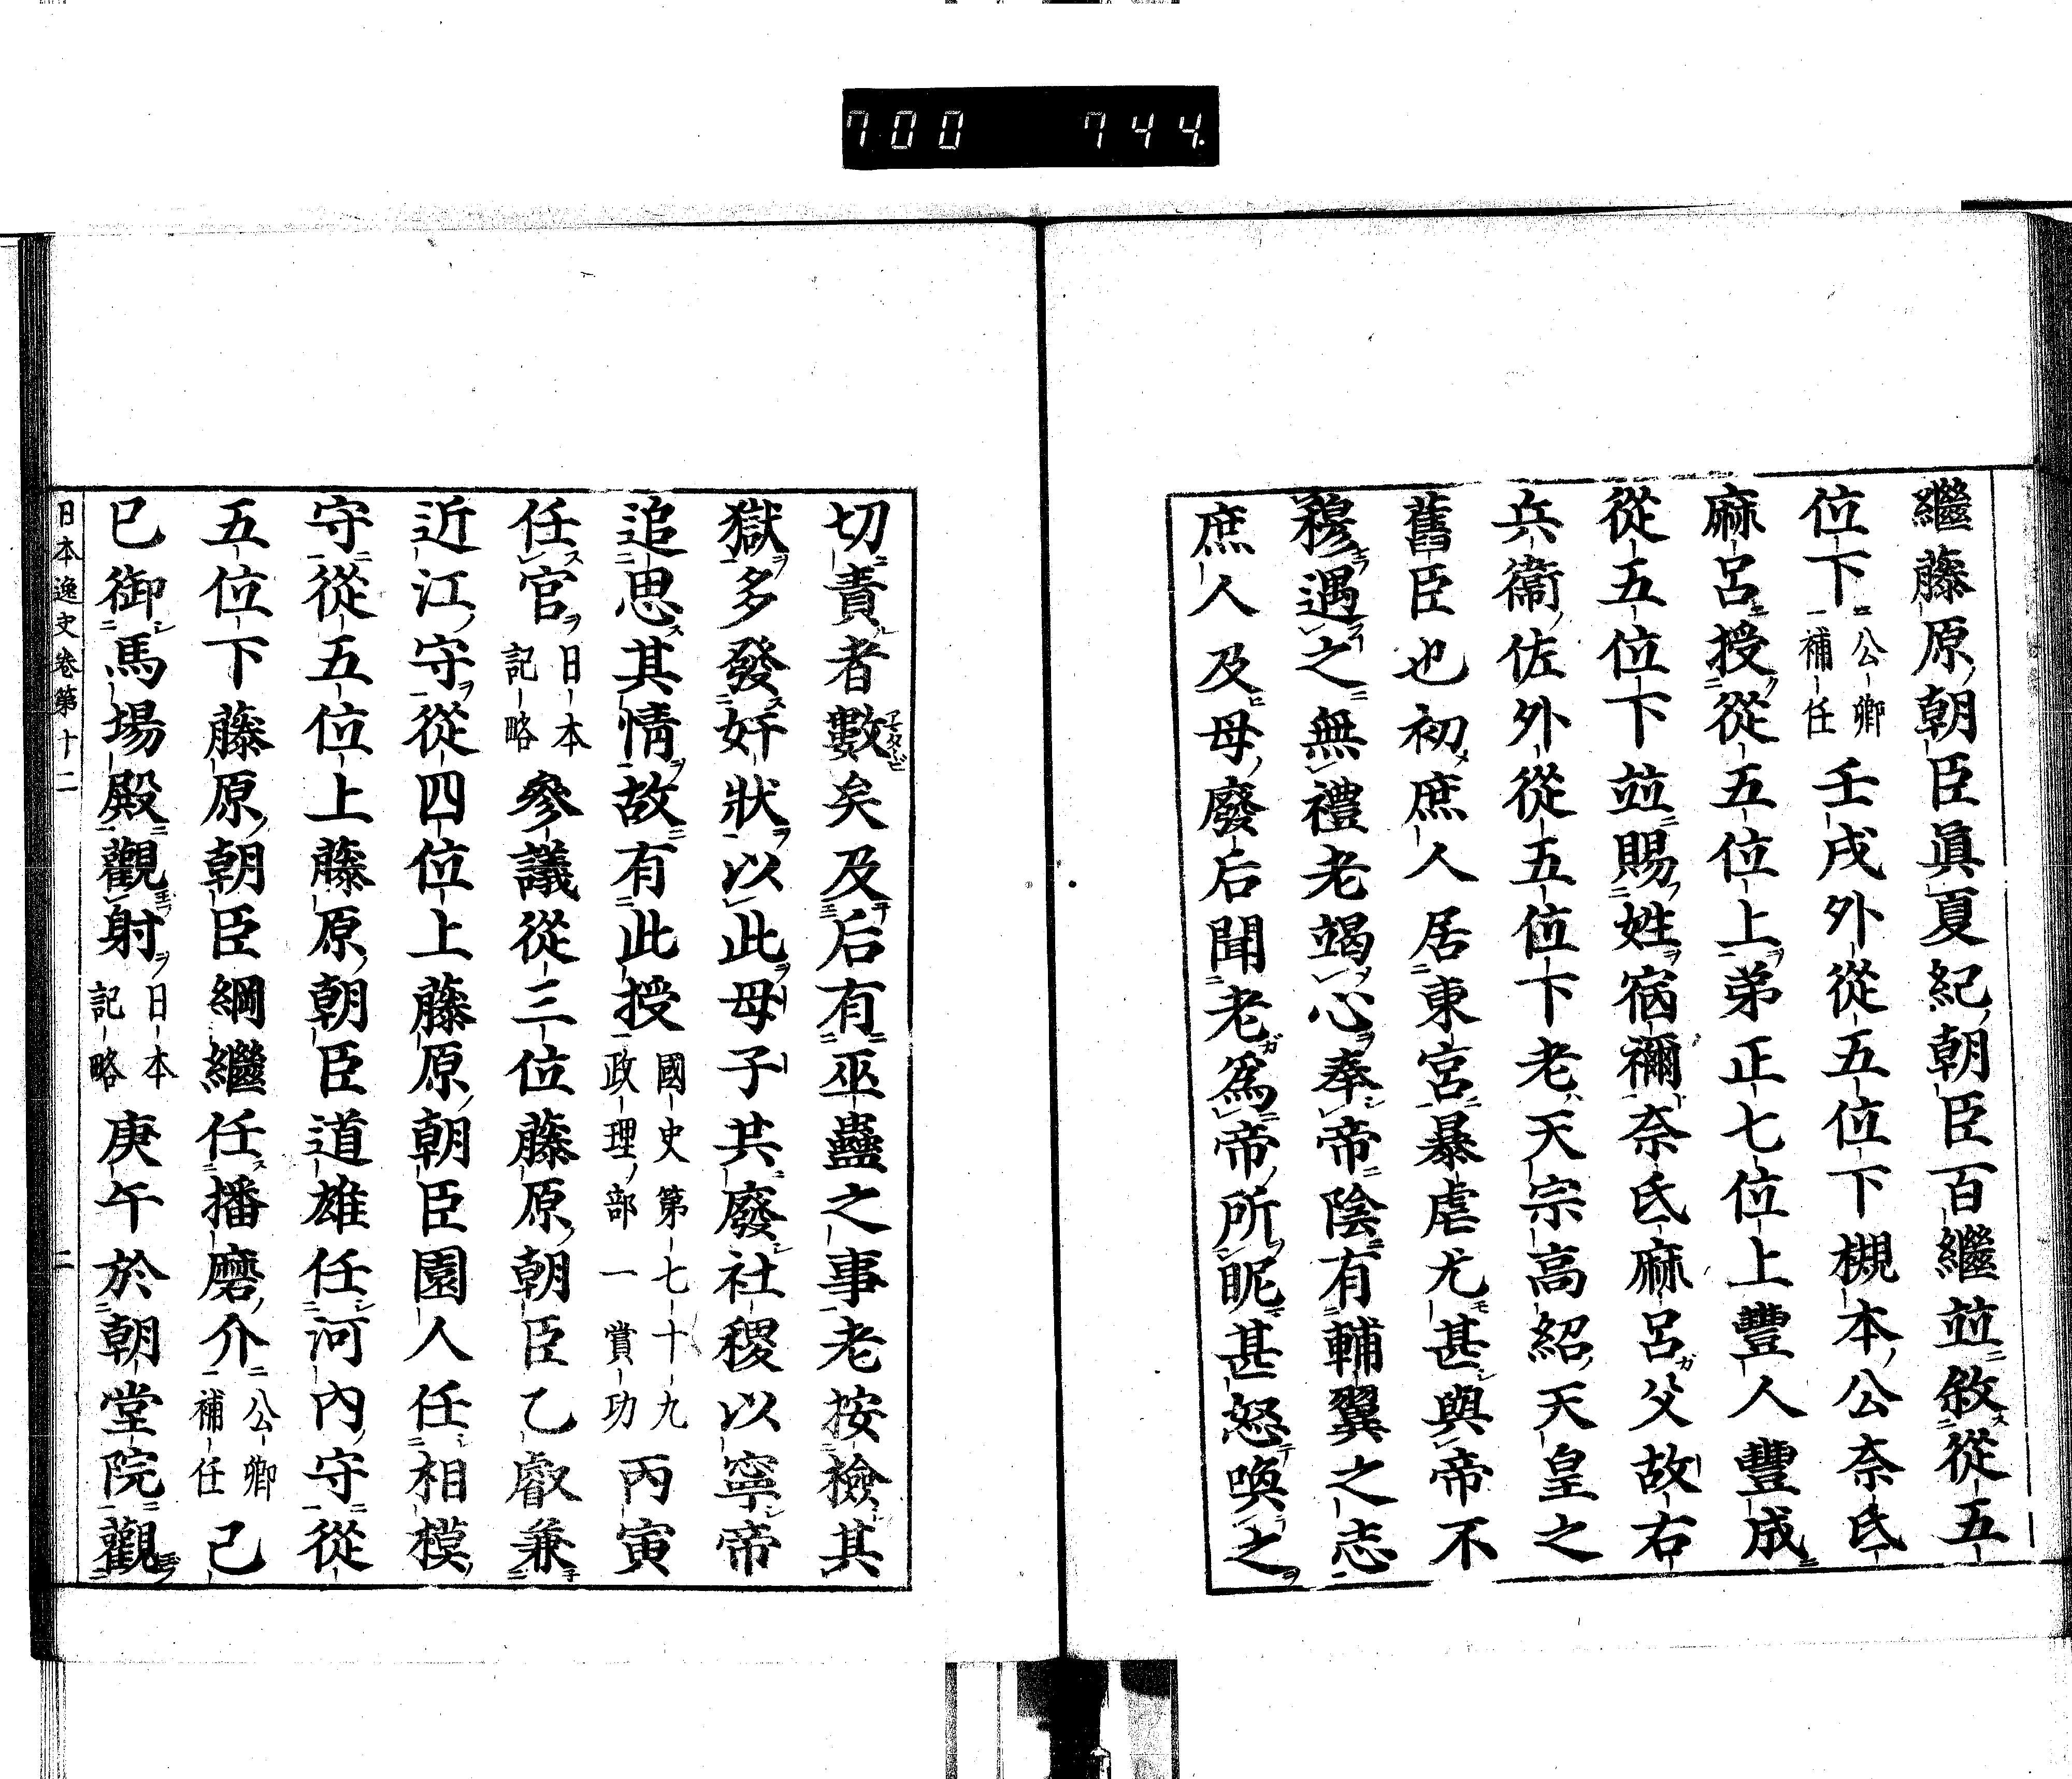 700 744
繼藤原朝臣眞夏紀朝臣百繼並敘從五
位下公卿補任壬戌外從五位下槻本公奈氐
麻呂授從五位上弟正七位上豐人豐成
從五位下並賜姓宿禰奈氐麻呂父故右
兵衞佐外從五位下老天宗高紹天皇之
舊臣也初庶人居東宮暴虐尤甚與帝不
穆遇之無禮老竭心奉帝陰有輔翼之志
庶人及母廢后聞老爲帝所昵甚怒喚之
切責者數矣及后有巫蠱之事老按檢其
獄多發奸狀以此母子共廢社稷以寧帝
追思其情故有此授國史第七十九政理部一賞功丙寅
任官日本記略參議從三位藤原朝臣乙叡兼
近江守從四位上藤原朝臣園人任相模
守從五位上藤原朝臣道雄任河內守從
五位下藤原朝臣綱繼任播磨介公卿補任己
巳御馬場殿觀射日本記略庚午於朝堂院觀
日本逸史卷第十二 二